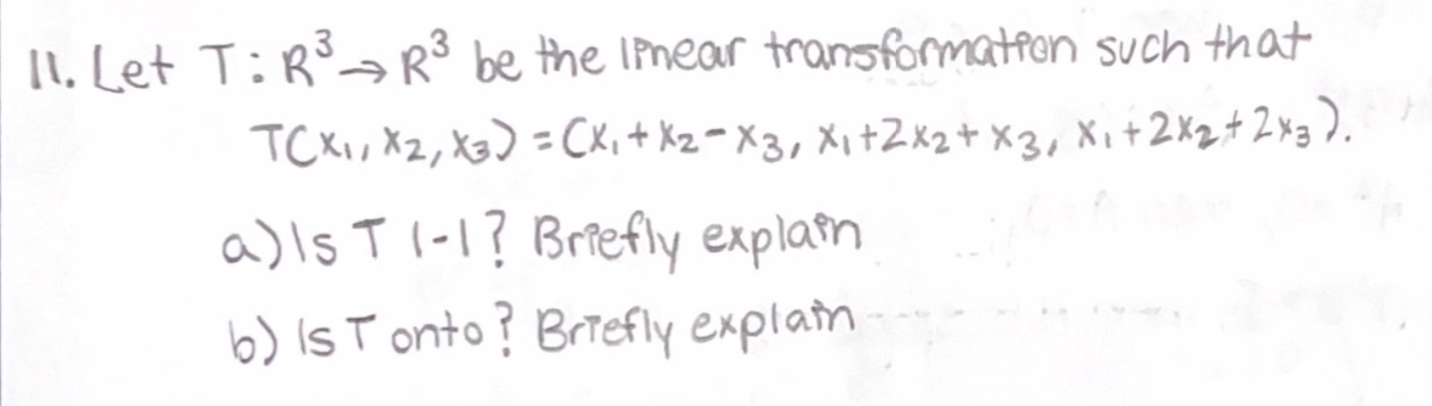 11. Let T: R³ → R³ be the linear transformation such that
T(x₁, x₂, x₃) = (x₁ + x₂ - x₃, x₁ + 2x₂ + x₃, x₁ + 2x₂ + 2x₃).
a) Is T 1-1? Briefly explain
b) Is T onto? Briefly explain